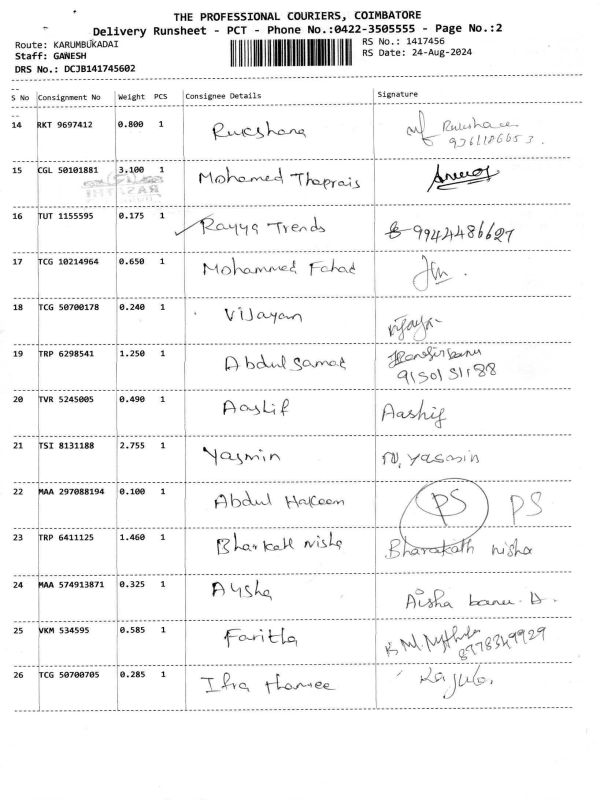 THE PROFESSIONAL COURIERS, COIMBATORE
Delivery Runsheet - PCT - Phone No.:0422-3505555 - Page No.:2
Route: KARUMBUKADAI RS No.: 1417456
Staff: GANESH RS Date: 24-Aug-2024
DRS No.: DCJB141745602
S No Consignment No Weight PCS Consignee Details Signature
14 RKT 9697412 0.800 1 Rukshana Rukshana
9361186653.
15 CGL 50101881 3.100 1 Mohamed Thaprais
16 TUT 1155595 0.175 1 Rayya Trends 9944486627
17 TCG 10214964 0.650 1 Mohammed Fahad
18 TCG 50700178 0.240 1 Vijayan Vijayan
19 TRP 6298541 1.250 1 Abdul Samad
9150151188
20 TVR 5245005 0.490 1 Aashif Aashif
21 TSI 8131188 2.755 1 Yasmin N. Yasmin
22 MAA 297088194 0.100 1 Abdul Hakeem PS PS
23 TRP 6411125 1.460 1 Bharkath nisha Bharakath nisha
24 MAA 574913871 0.325 1 Aysha Aisha banu. A.
25 VKM 534595 0.585 1 Faritha
8778349929
26 TCG 50700705 0.285 1 Ifra